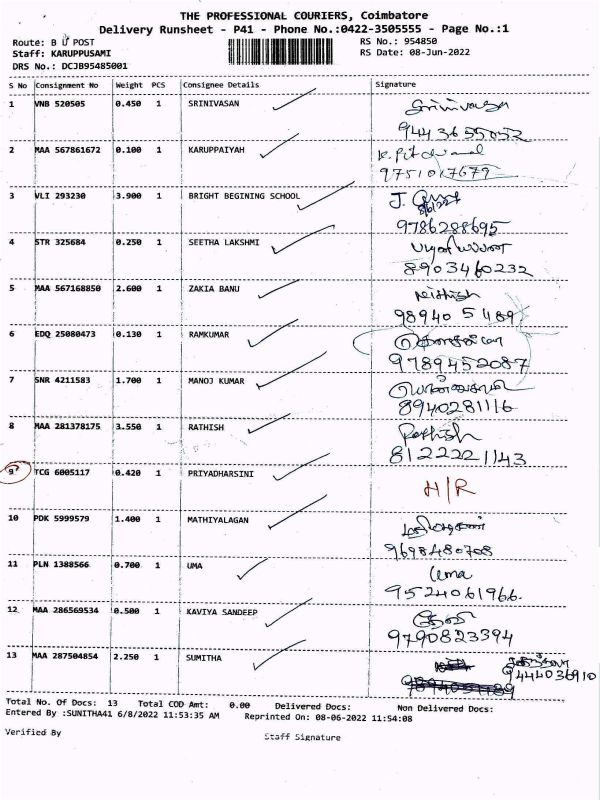 THE PROFESSIONAL COURIERS, Coimbatore
Delivery Runsheet - P41 - Phone No.:0422-3505555 - Page No.:1
Route: B U POST RS No.: 954850
Staff: KARUPPUSAMI RS Date: 08-Jun-2022
DRS No.: DCJB95485001
S No Consignment No Weight PCS Consignee Details Signature
1 VNB 520505 0.450 1 SRINIVASAN Srinivasan
9443655052
2 MAA 567861672 0.100 1 KARUPPAIYAH
9751017679
3 VLI 293230 3.900 1 BRIGHT BEGINING SCHOOL J.
9786288695
4 STR 325684 0.250 1 SEETHA LAKSHMI
8903460232
5 MAA 567168850 2.600 1 ZAKIA BANU Nithish
98940 5 489
6 EDQ 25080473 0.130 1 RAMKUMAR
9789452087
7 SNR 4211583 1.700 1 MANOJ KUMAR
8940281116
8 MAA 281378175 3.550 1 RATHISH Rathish
8122221143
9 TCG 6005117 0.420 1 PRIYADHARSINI H/R
10 PDK 5999579 1.400 1 MATHIYALAGAN மதியழகன்
9698480708
11 PLN 1388566 0.700 1 UMA Uma
9524061966.
12 MAA 286569534 0.500 1 KAVIYA SANDEEP
9790823394
13 MAA 287504854 2.250 1 SUMITHA
9444036910
Total No. Of Docs: 13 Total COD Amt: 0.00 Delivered Docs: Non Delivered Docs:
Entered By :SUNITHA41 6/8/2022 11:53:35 AM Reprinted On: 08-06-2022 11:54:08
Verified By Staff Signature